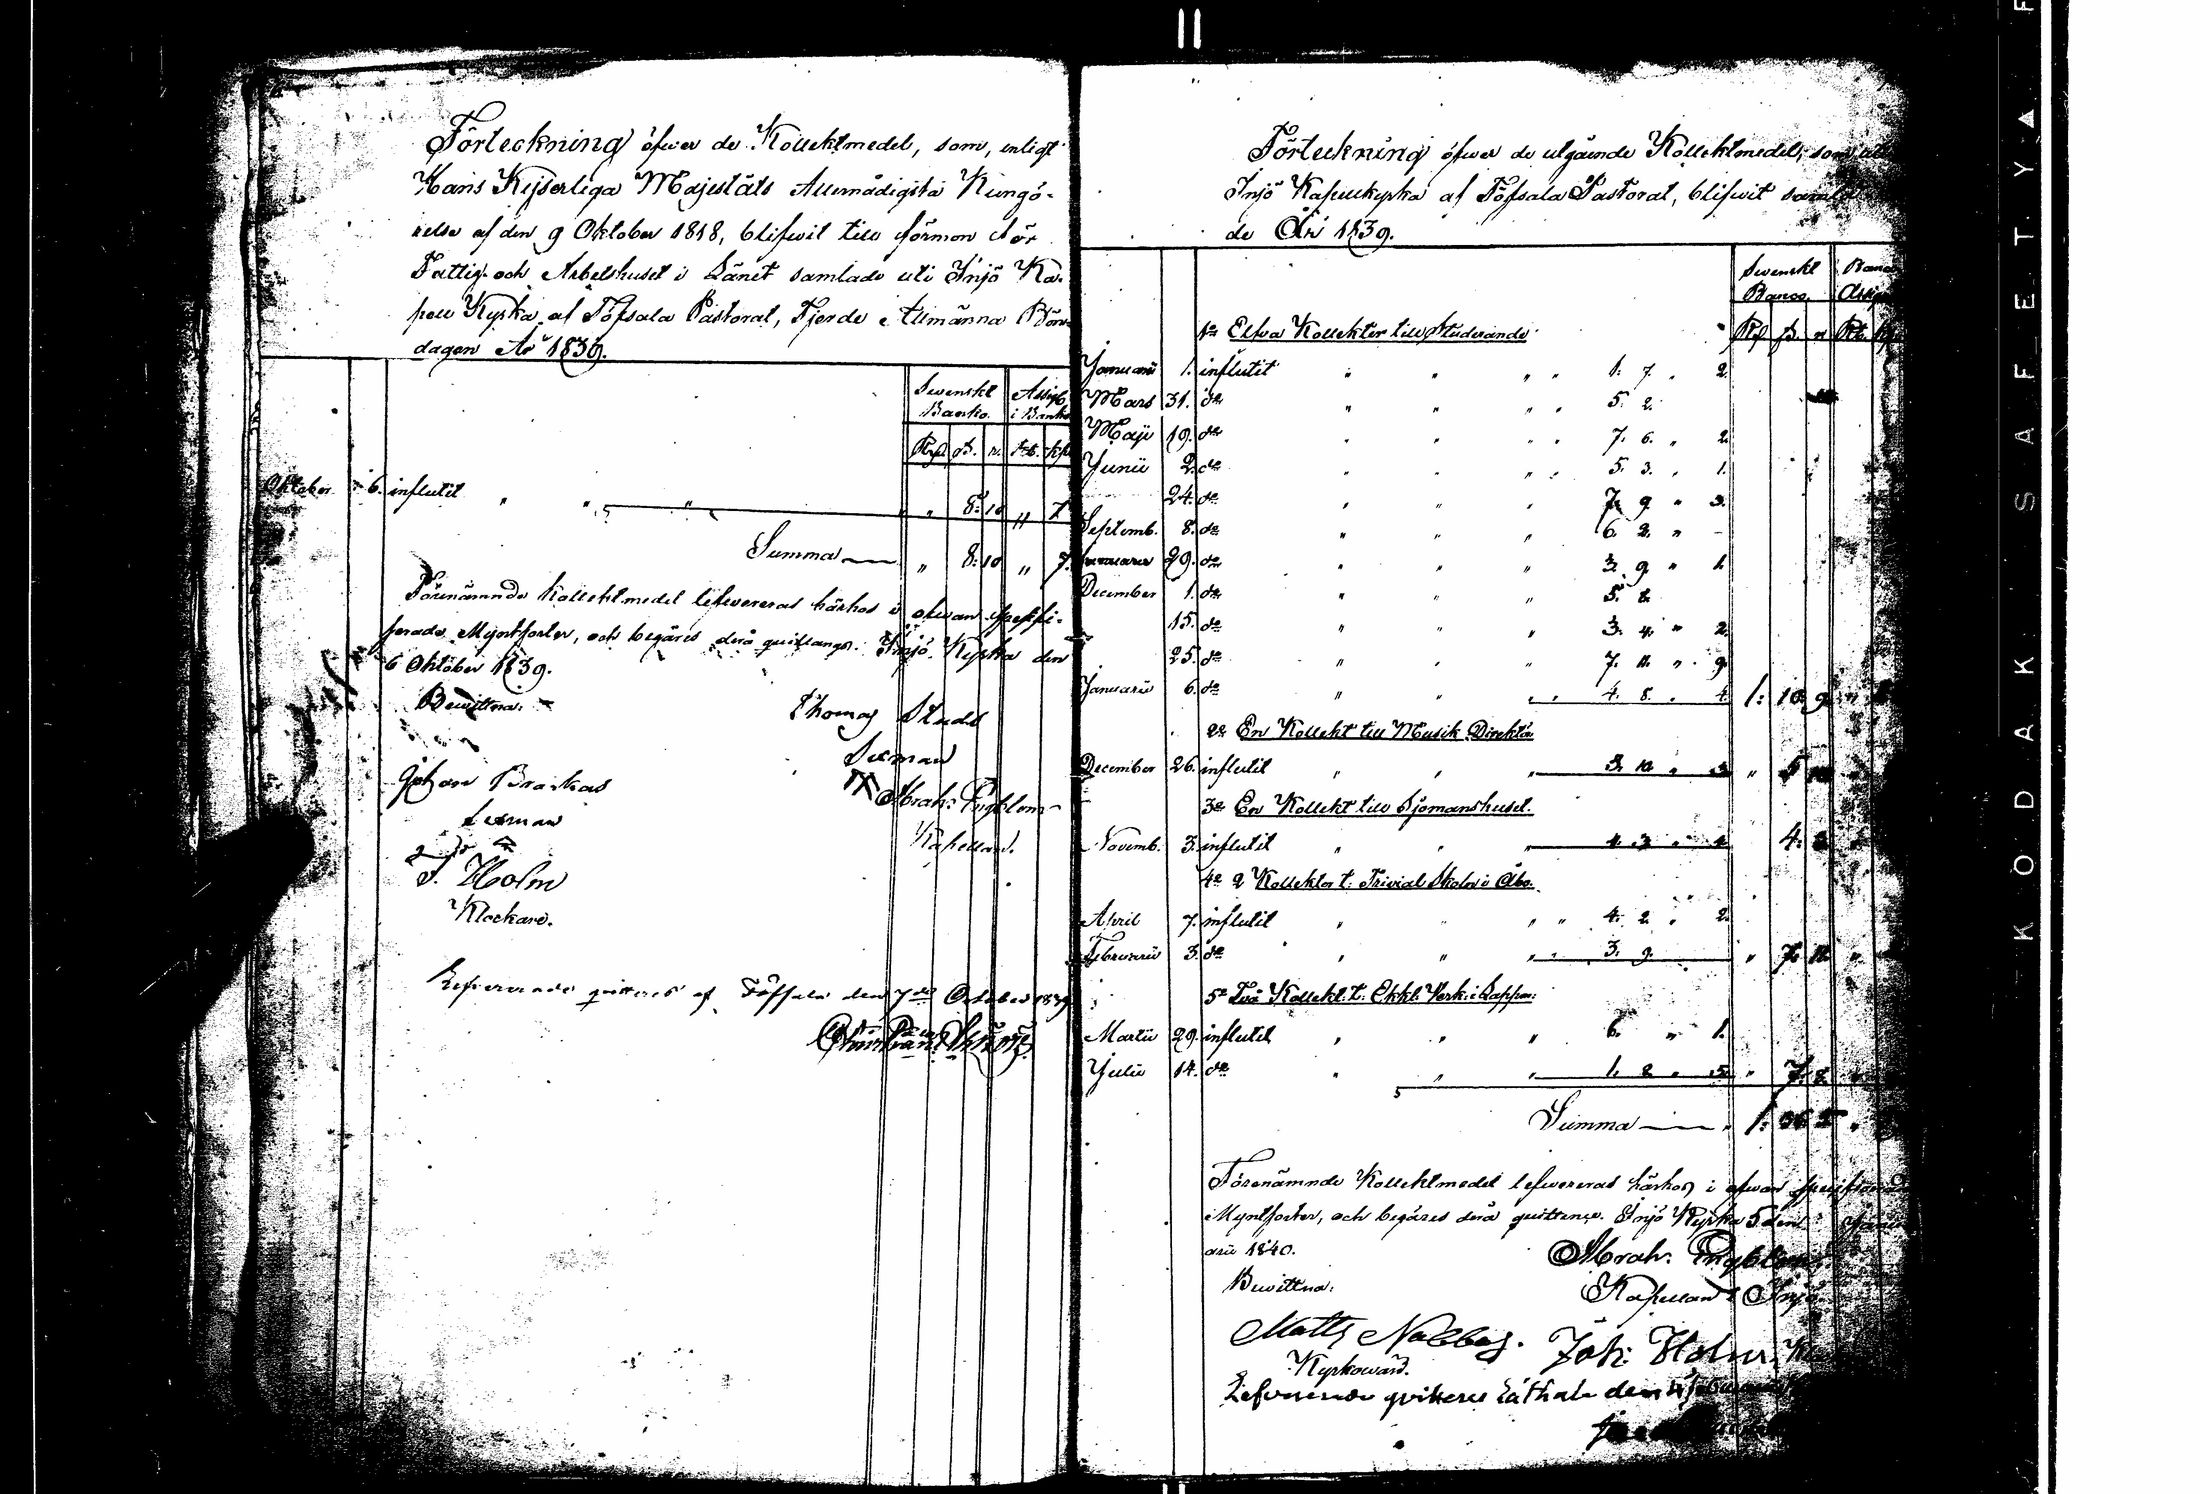 Förteckning öfwer de Kollektmedel, som, enligt
Hans Kejserliga Majestäts Allernådigsta Kungö-
relse af den 9 Oktober 1818, blifwit till förmon för
Fattig- och Arbetshuset i Länet samlade uti Iniö Ka-
pell Kyrka af Töfsala Pastorat, Fjerde Allmänna Böne-
dagen År 1839.
Swenskt Banko. Assig. i Banko
R:d ß. r. Rb. kp
Oktober 6. influtit " " " " 8: 10 " 7
Summa " 8: 10 " 7.
Förenämnde Kollektmedel lefwereras härhos i ofwan speci-
ficerade Myntsorter, och begäres derå quittance. Iniö Kyrka den
6 Oktober 1839.
Bewittna:
Thomas Studs
Sexman
Johan Brankas
Abrah: Engblom
Sexman
Kapellan.
J. Holm
Klockare.
Lefwererade quitteras af Töfsala den 7de October 1839
Förteckning öfwer de utgående Kollektmedel, som uti
Iniö Kapellkyrka af Töfsala Pastorat, blifwit samla-
de År 1839.
Swenskt Banco.
R:d ß. r.
1o Elfva Kollekter till Studerande
Januarii 1. influtit " " " " 1. 7. " 2.
Mars 31. do " " " " 5. 2.
Maji 19. do " " " " 7. 6. " 2.
Junii 2. do " " " " 5. 3. " 1.
24. do " " " 7. 9. " 3.
Septemb. 8. do " " " 6. 2. " -
29. do " " " 3. 9. " 1.
December 1. do " " " 5. 2.
15. do " " " 3. 4. " 2.
25. do " " " 7. 11. " 9.
Januarii 6. do " " " " 4. 8. " 4. 1: 10 9
2o En Kollekt till Musik Direktör
December 26. influtit " " " 3. 10. " 3. " 5
3o En Kollekt till Sjömanshuset.
Novemb. 3. influtit " " " 4. 3. " 4. 4:
4o 2 Kollekter t. Trivial Skolor i Åbo.
April 7. influtit " " " " 4. 2. " 2.
Februarii 3. do " " " " 3. 9. " 7. 11. "
5o Två Kollekt. t. Ekkl. Verk. i Lappm:
Martii 29. influtit " " " 6. " 1.
Julii 14. do " " " 1. 2. " 5. " 7. 2.
Summa 1:
Förenämnde Kollektmedel lefwereras härhos i ofwan specificerade
Myntsorter, och begäres derå quittance. Iniö Kyrka den 5 Janu-
arii 1840.
Abrah: Engblom.
Bewittna:
Kapellan i Iniö
Matts Nabbas.
Joh: Holm.
Kyrkowärd.
Lefwererade qvitteras Låthala den
KODAK SAFETY